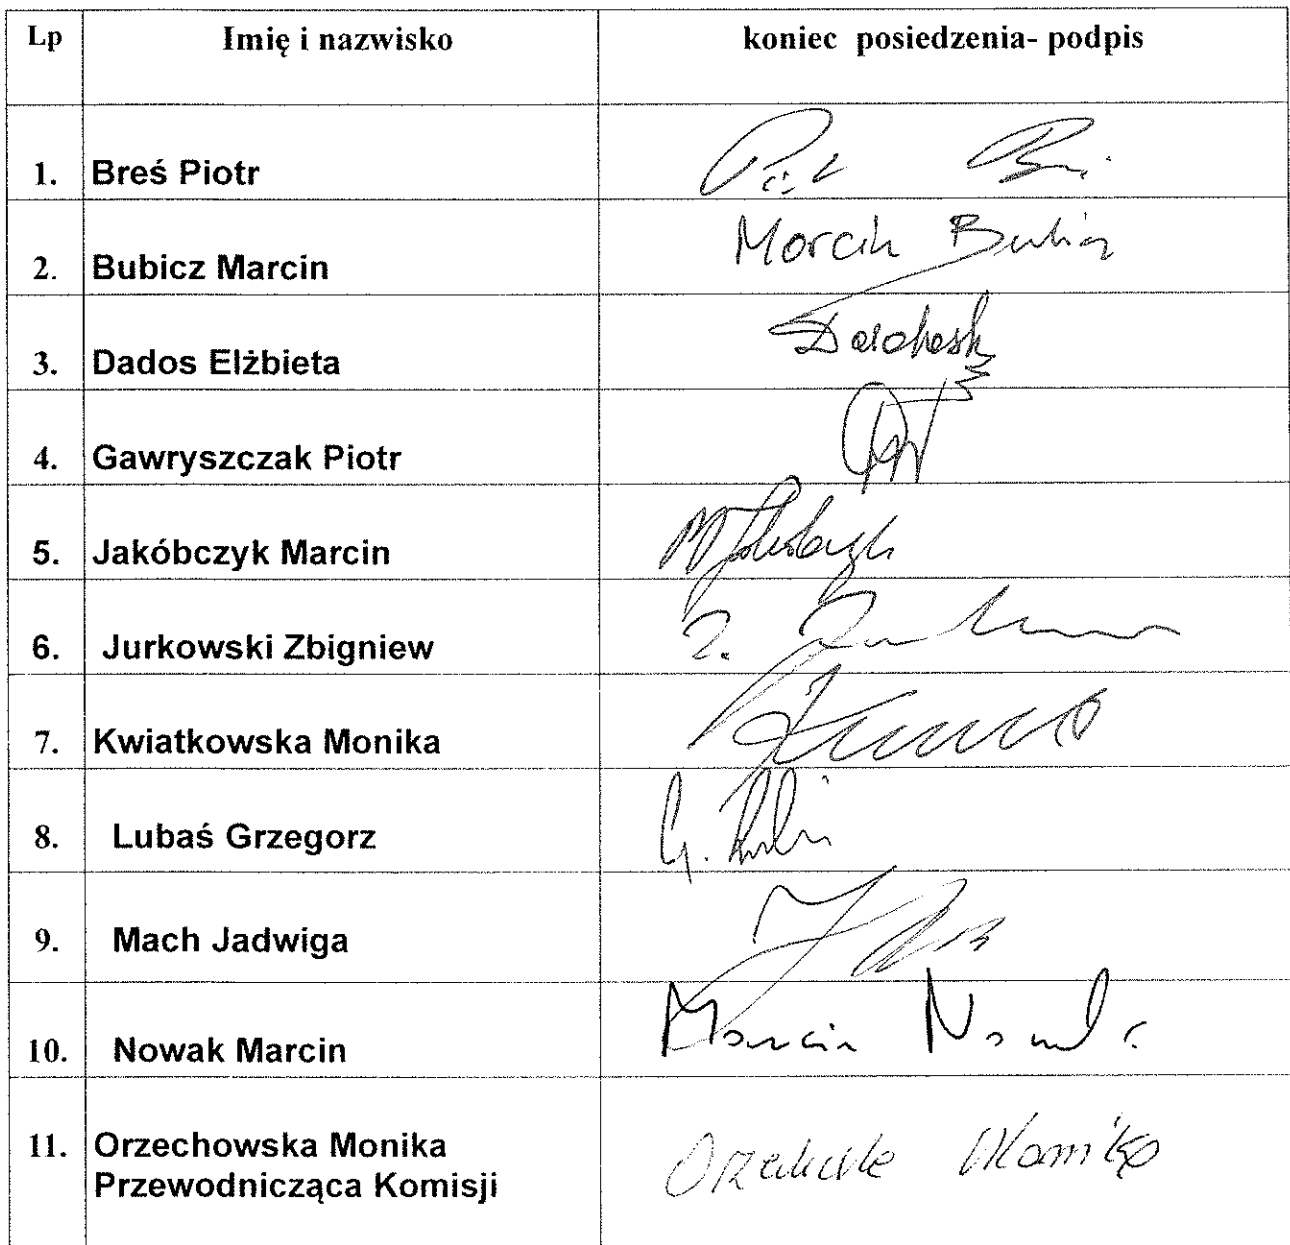 Lp Imię i nazwisko koniec posiedzenia- podpis
1. Breś Piotr
2. Bubicz Marcin Marcin
3. Dados Elżbieta
4. Gawryszczak Piotr
5. Jakóbczyk Marcin
6. Jurkowski Zbigniew
7. Kwiatkowska Monika
8. Lubaś Grzegorz
9. Mach Jadwiga
10. Nowak Marcin Marcin Nowak
11. Orzechowska Monika
Przewodnicząca Komisji